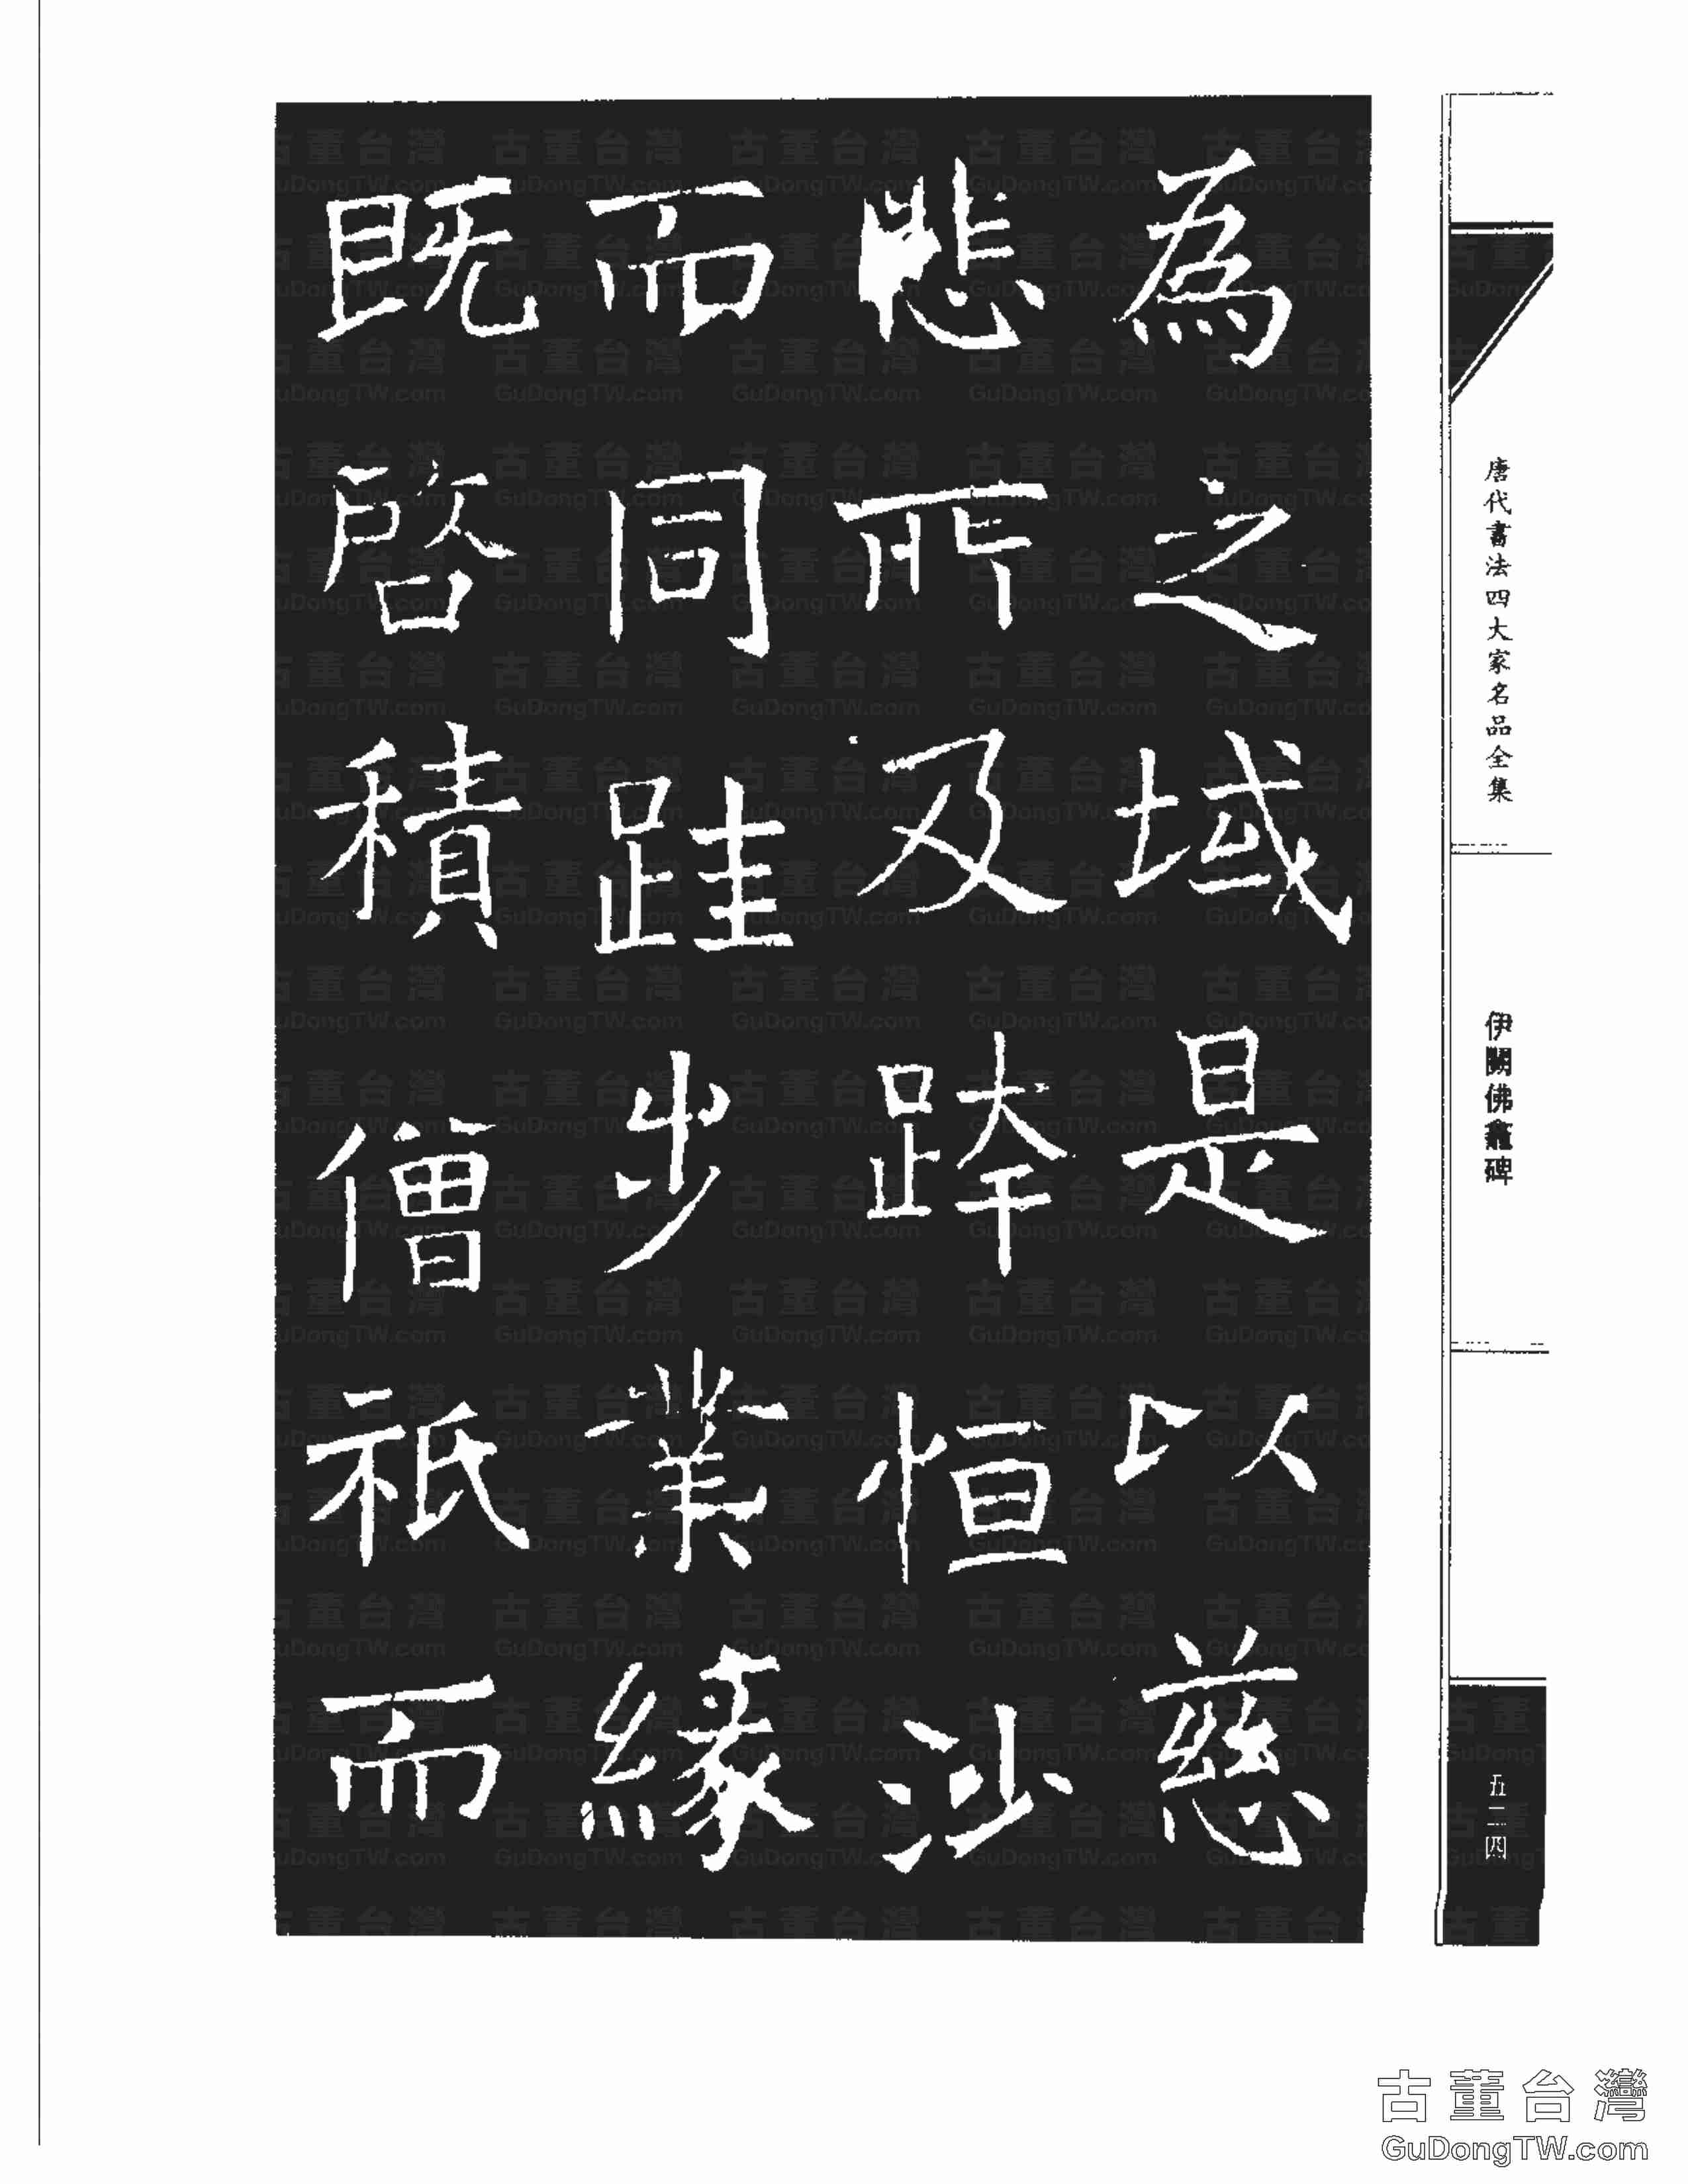 為之域是以慈
悲所及跨恒沙
而同跬步業緣
既啓積僧祇而
唐代書法四大家名品全集
伊闕佛龕碑
五二四
古董台灣
GuDongTW.com